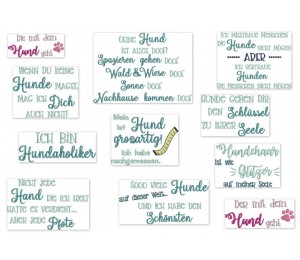 Die mit dem
Hund geht
OHNE Hund
IST ALLES DOOF!
Spazieren gehen DOOF
Wald & Wiese DOOF
Sonne DOOF
Nachhause kommen DOOF
ICH MISSTRAUE MENSCHEN,
DIE Hunde NICHT MÖGEN
ABER
ICH VERTRAUE
Hunden
DIE MENSCHEN NICHT MÖGEN
WENN DU MEINE
Hunde MAGST,
MAG ICH Dich
AUCH NICHT!
HUNDE GEBEN DIR
DEN Schlüssel
ZU IHRER Seele
ICH BIN
Hundaholiker
Mein Hund
ist
großartig!
Ich habe
nachgemessen.
Hundehaar
IST WIE
Glitzer
auf meiner Seele
NICHT JEDE
Hand DIE ICH HIELT
HATTE ES VERDIENT...
ABER JEDE Pfote
SOOO VIELE Hunde
auf dieser Welt...
UND ICH HABE DEN
Schönsten
Der mit dem
Hund geht